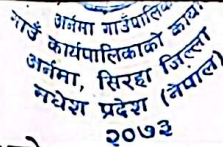 अर्नमा गाउँपालिका
गाउँ कार्यपालिकाको कार्या
अर्नमा, सिरहा जिल्ला
मधेश प्रदेश (नेपाल)
२०७३